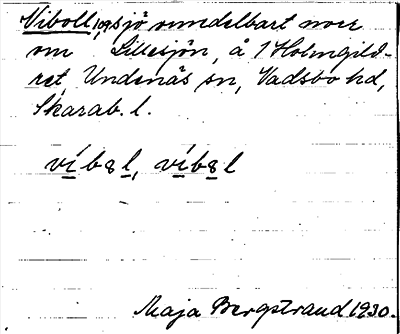 Viboll, sjö omedelbart norr
om Lillesjön, å 1 Holmgild-
ret, Undenäs sn, Vadsbo hd,
Skarab. l.
víb8l, víb8l
Maja Bergstrand 1930.